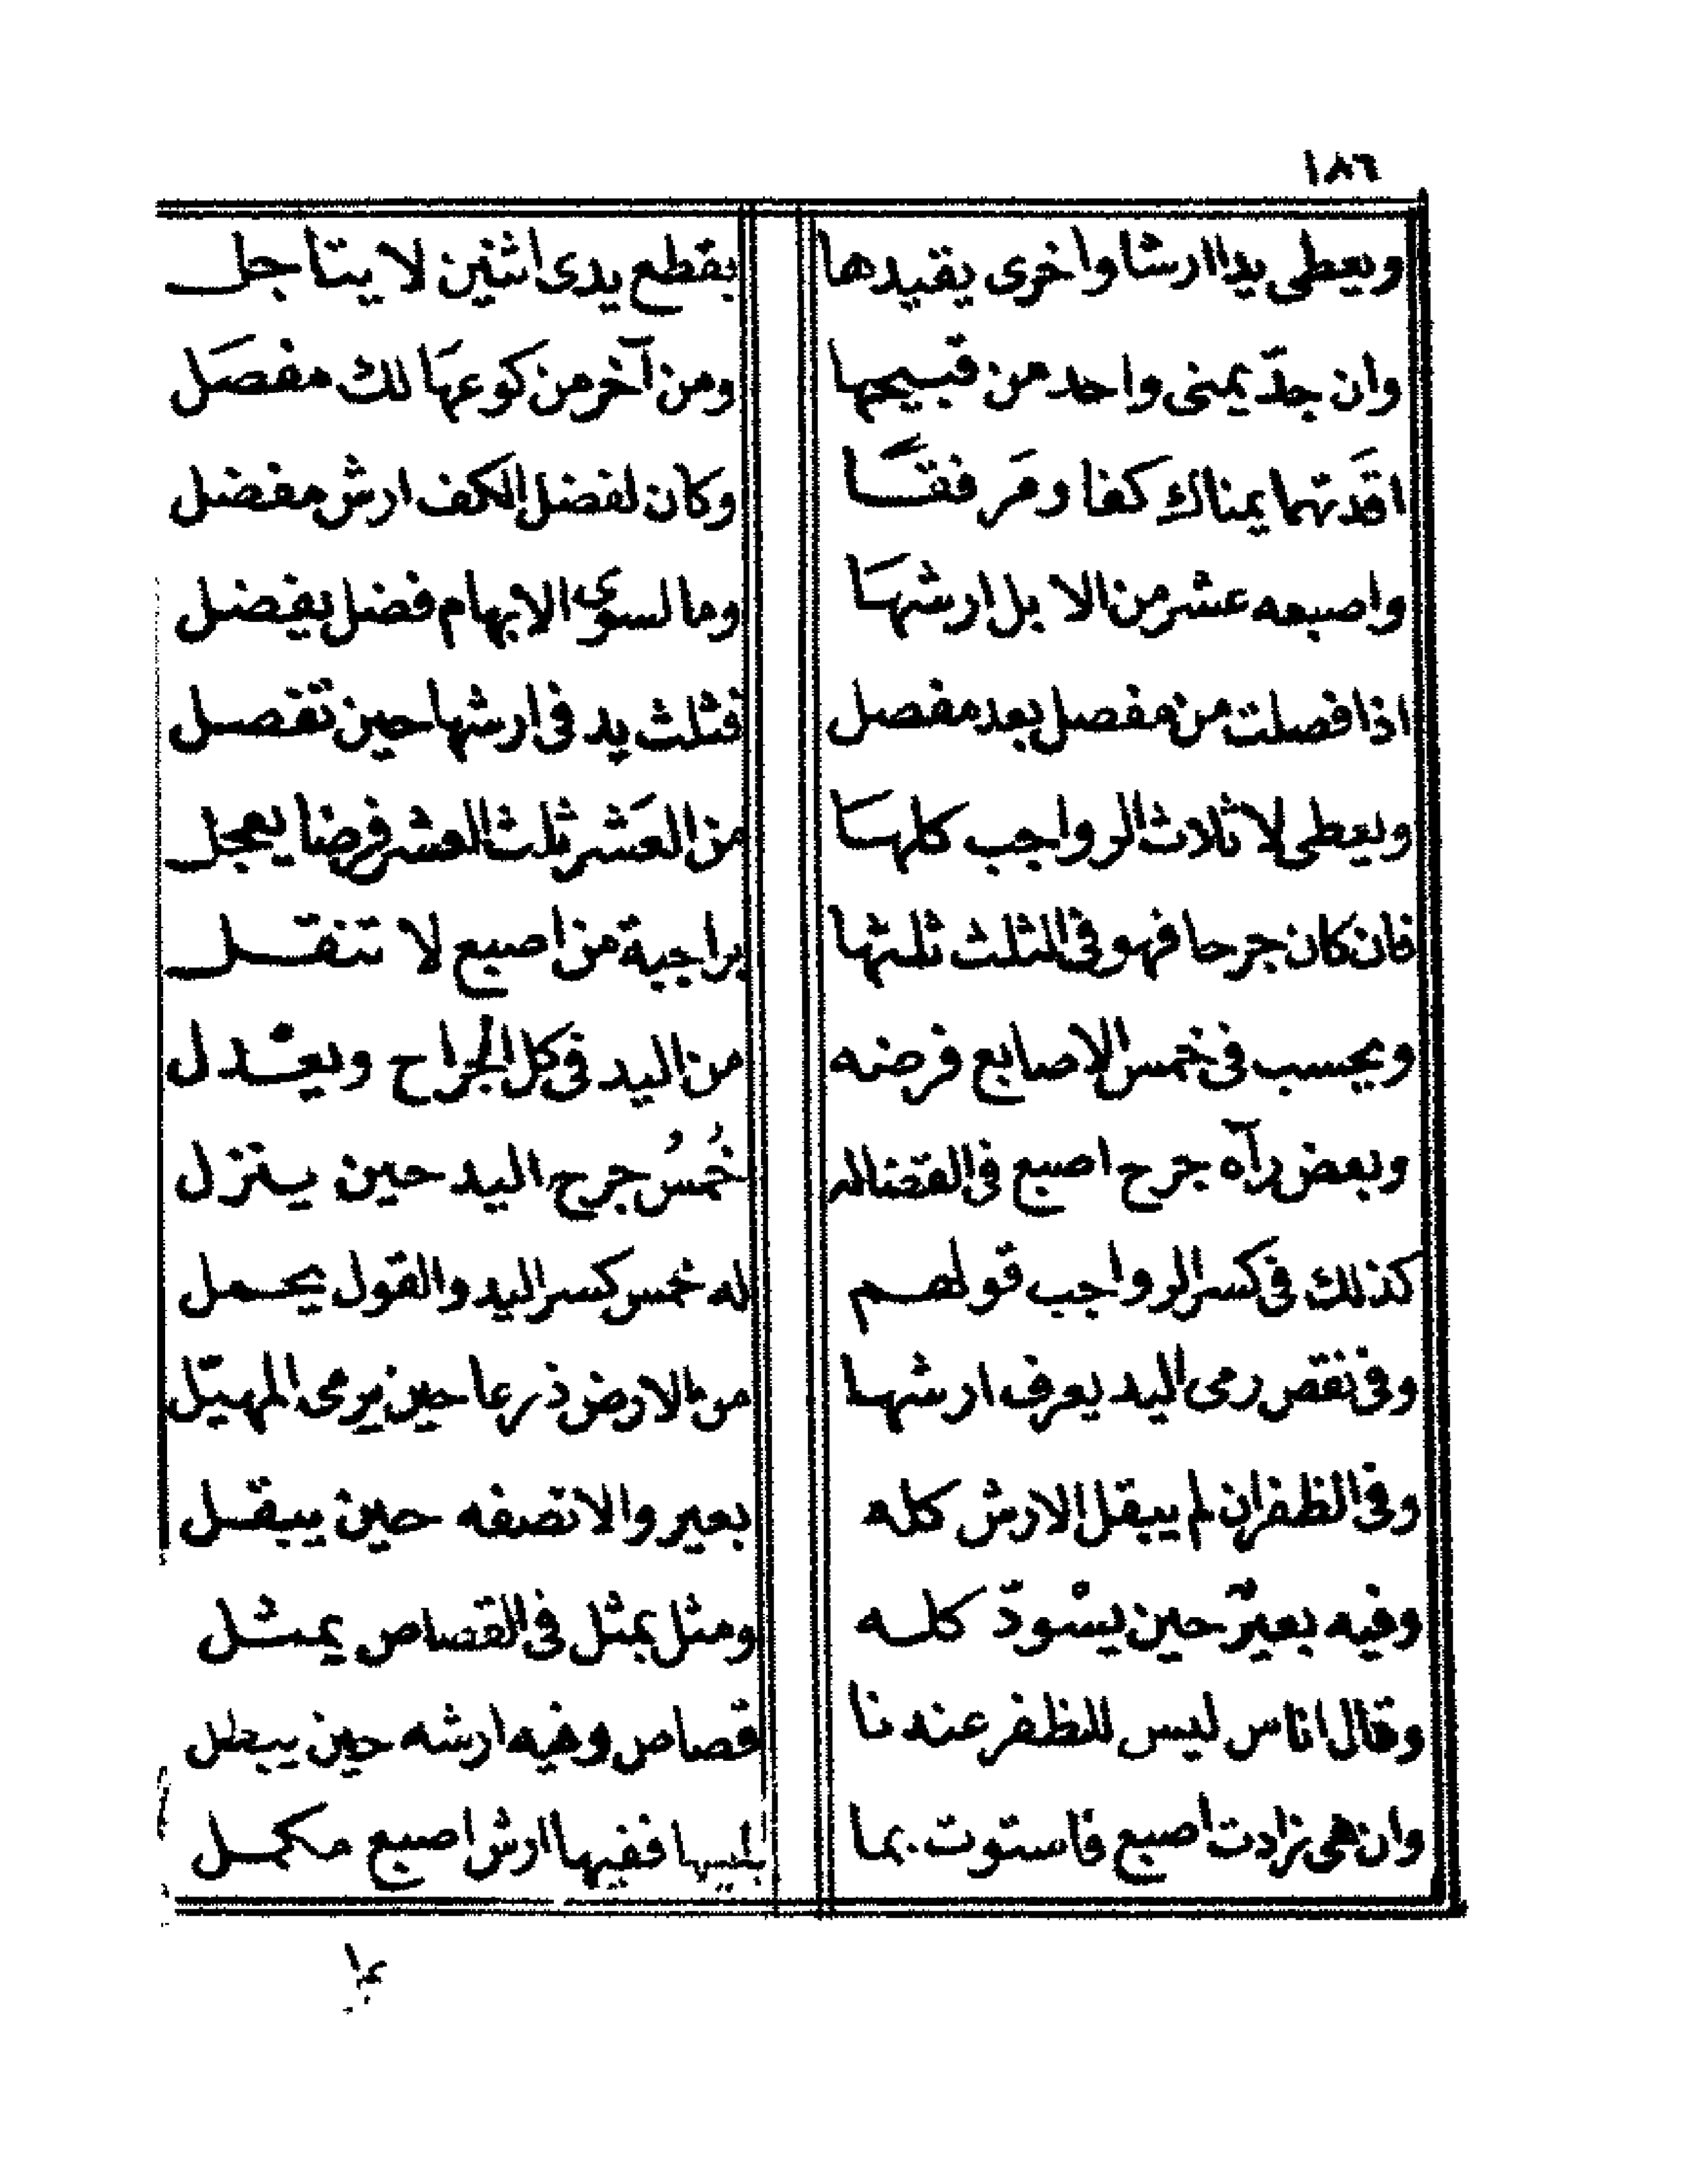 ١٨٦
ويعطى يدا ارشا واخرى يقيدها بقطع يدى اثنين لا يتاجل
وان جدّ يمنى واحد من قبيحها ومن آخر من كوعهَا لك مفصَل
اقَدتهما يمناك كفا ومَرفقًا وكان لفضل الكف ارش مفضل
واصبعه عشر من الابل ارشهَا وما لسوى الابهام فضل يفضل
اذا فصلت من مفصل بعد مفصل فثلث يد فى ارشها حين تفصل
ويعطى لا ثلاث الرواجب كلهَا من العَشر ثلث العشر فرضا يعجل
فان كان جرحا فهو فى الثلث ثلثها براجبة من اصبع لا تنقل
ويحسب فى خمس الاصابع فرضه من اليد فى كل الجراح ويعْدل
وبعض رآه جرح اصبع فى القضا له خُمسُ جرح اليد حين ينزل
كذلك فى كسر الرواجب قولهم له خمس كسر اليد والقول يحمل
وفى نقص رمى اليد يعرف ارشها من الارض ذرعا حين يرمى المهيّل
وفى الظفر ان لم يبقل الارش كله بعير والا نصفه حين يبقل
وفيه بعيرٌ حين يسْودّ كله ومثل بمثل فى القصاص يمثل
وقال اناس ليس للظفر عندنا قصاص وفيه ارشه حين يبطل
وان هى زادت اصبع فاستوت بما يليها ففيها ارش اصبع مكمل
بما